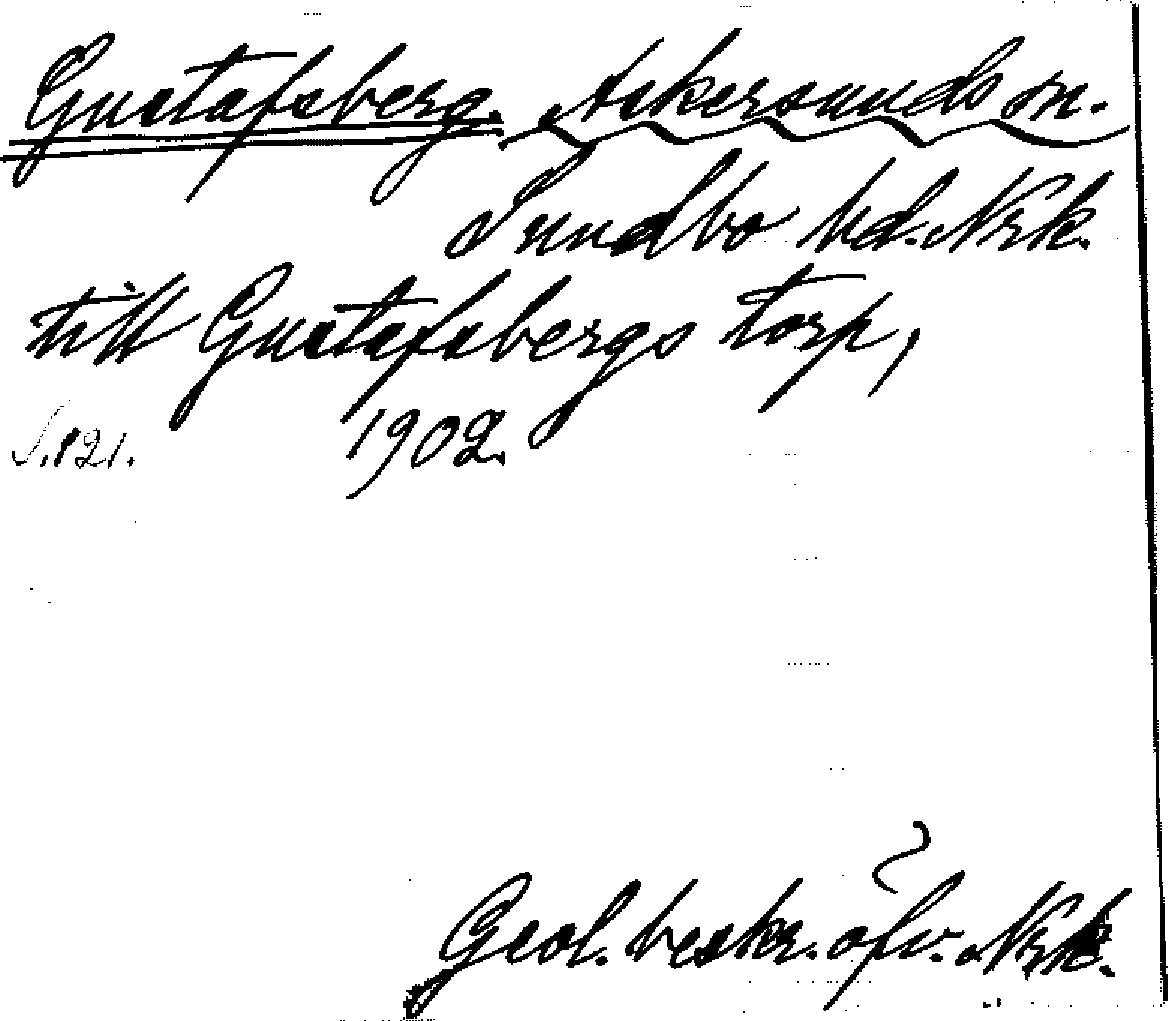 Gustafsberg. Askersunds sn.
Sundbo hd. Nrk.
till Gustafsbergs torp,
S. 121. 1902.
Geol. beskr. öfv. Nrk.